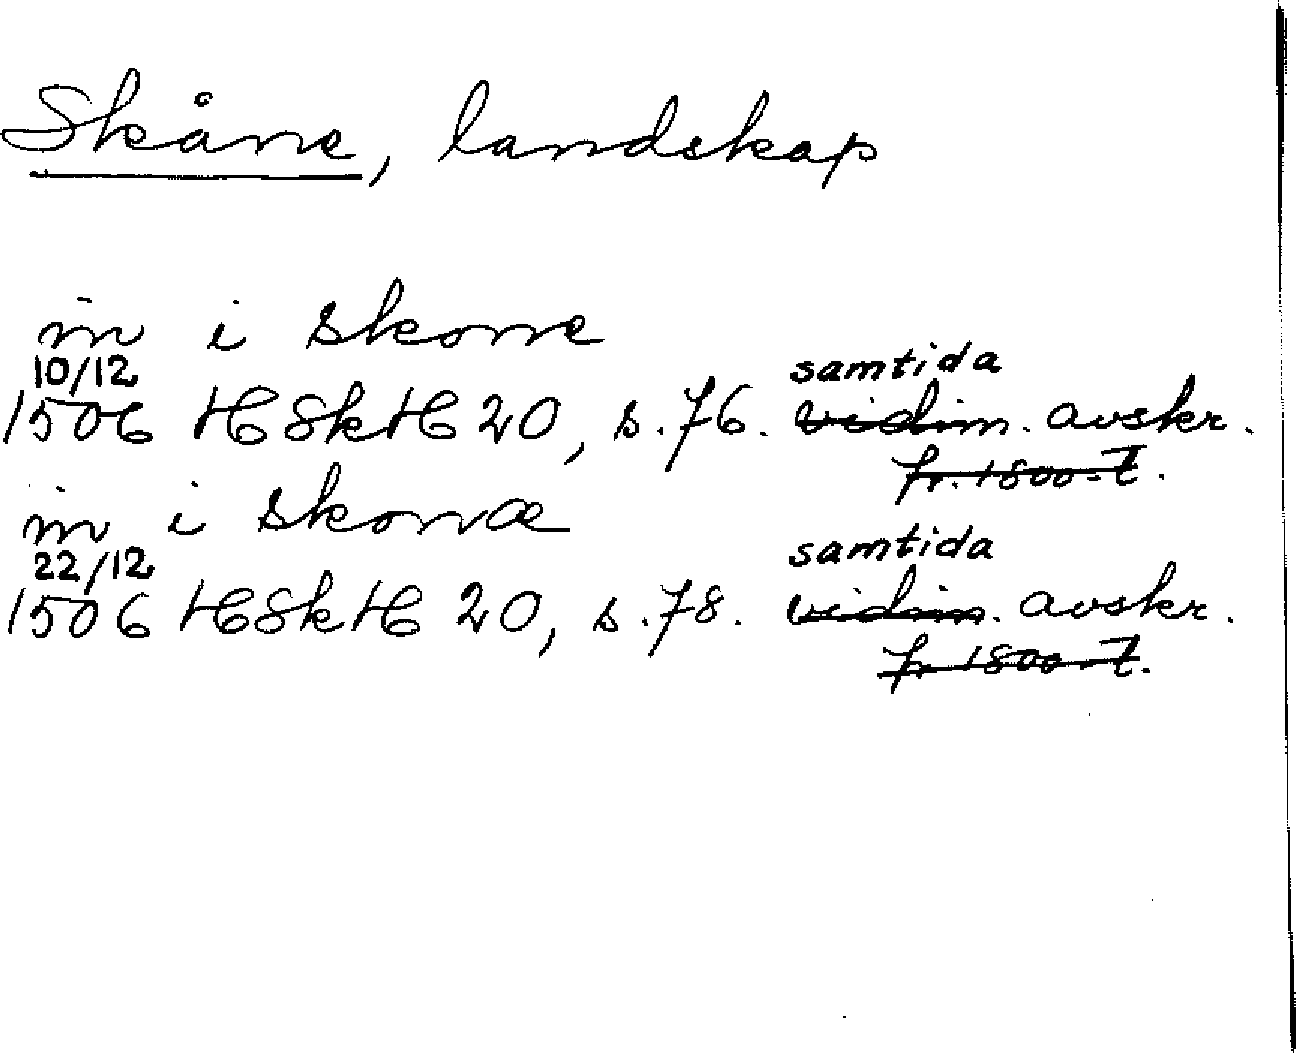 Skåne, landskap
in i skone
10/12 samtida
1506 HSkH 20, s. 76. vidim. avskr.
fr. 1800-t.
in i skonæ
22/12 samtida
1506 HSkH 20, s. 78. vidim. avskr.
fr 1800-t.